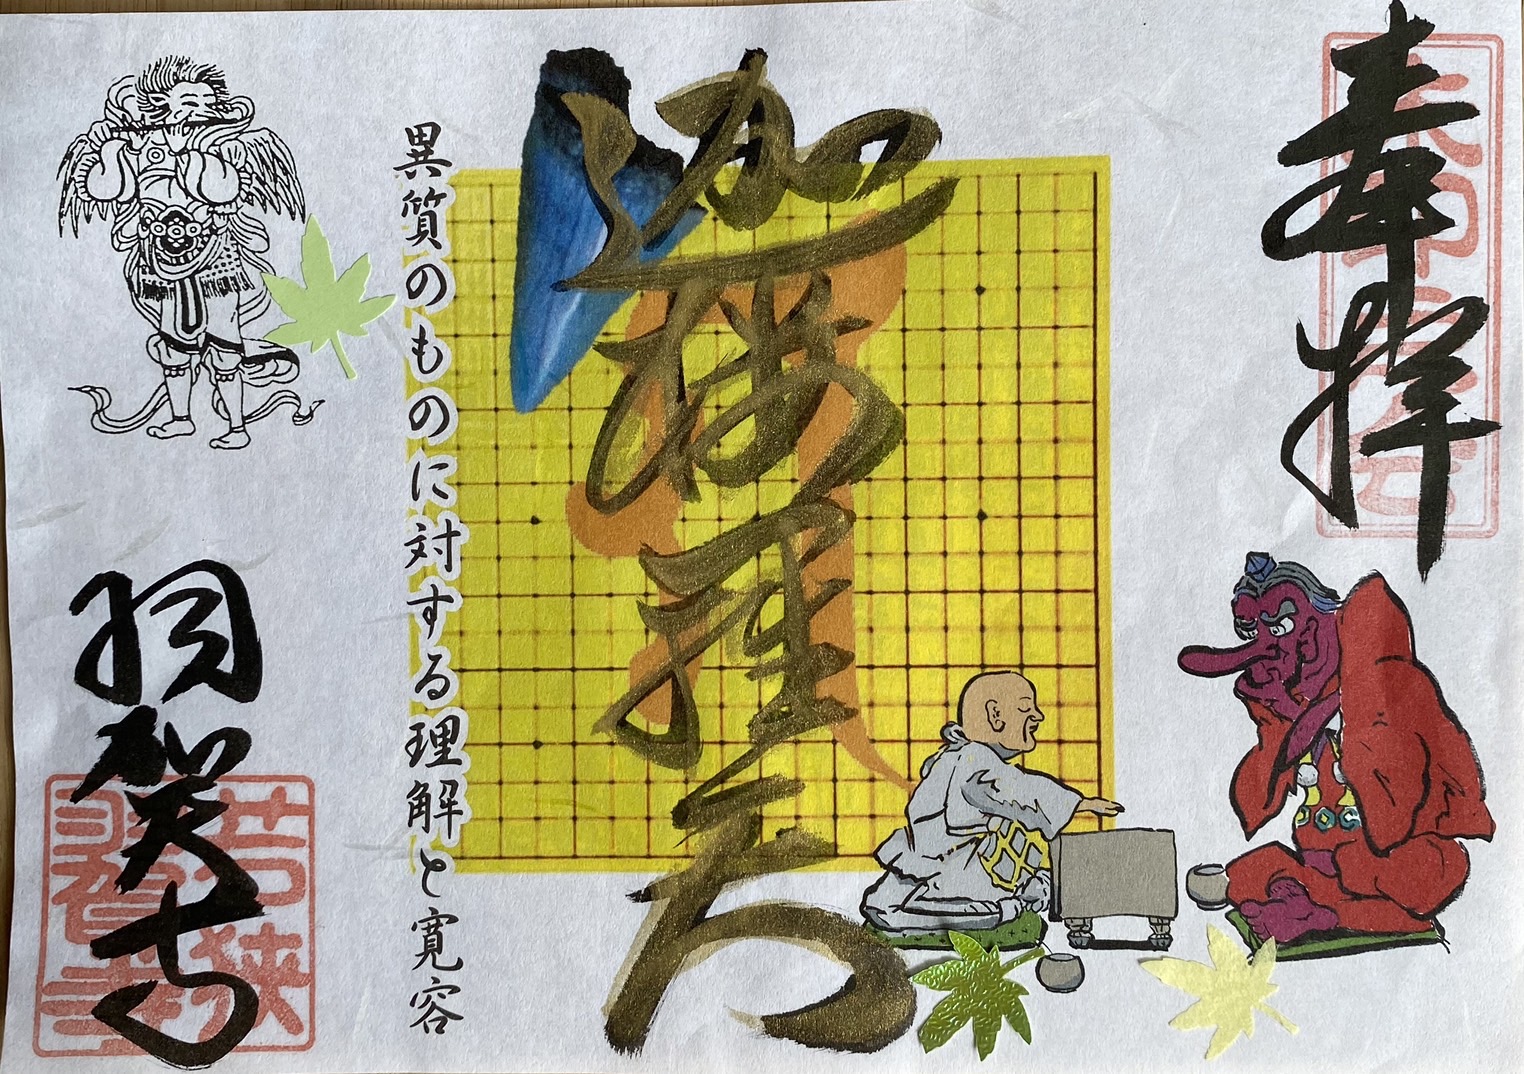 奉拝
迦楼羅天
異質のものに対する理解と寛容
羽賀寺
若狭
羽賀寺